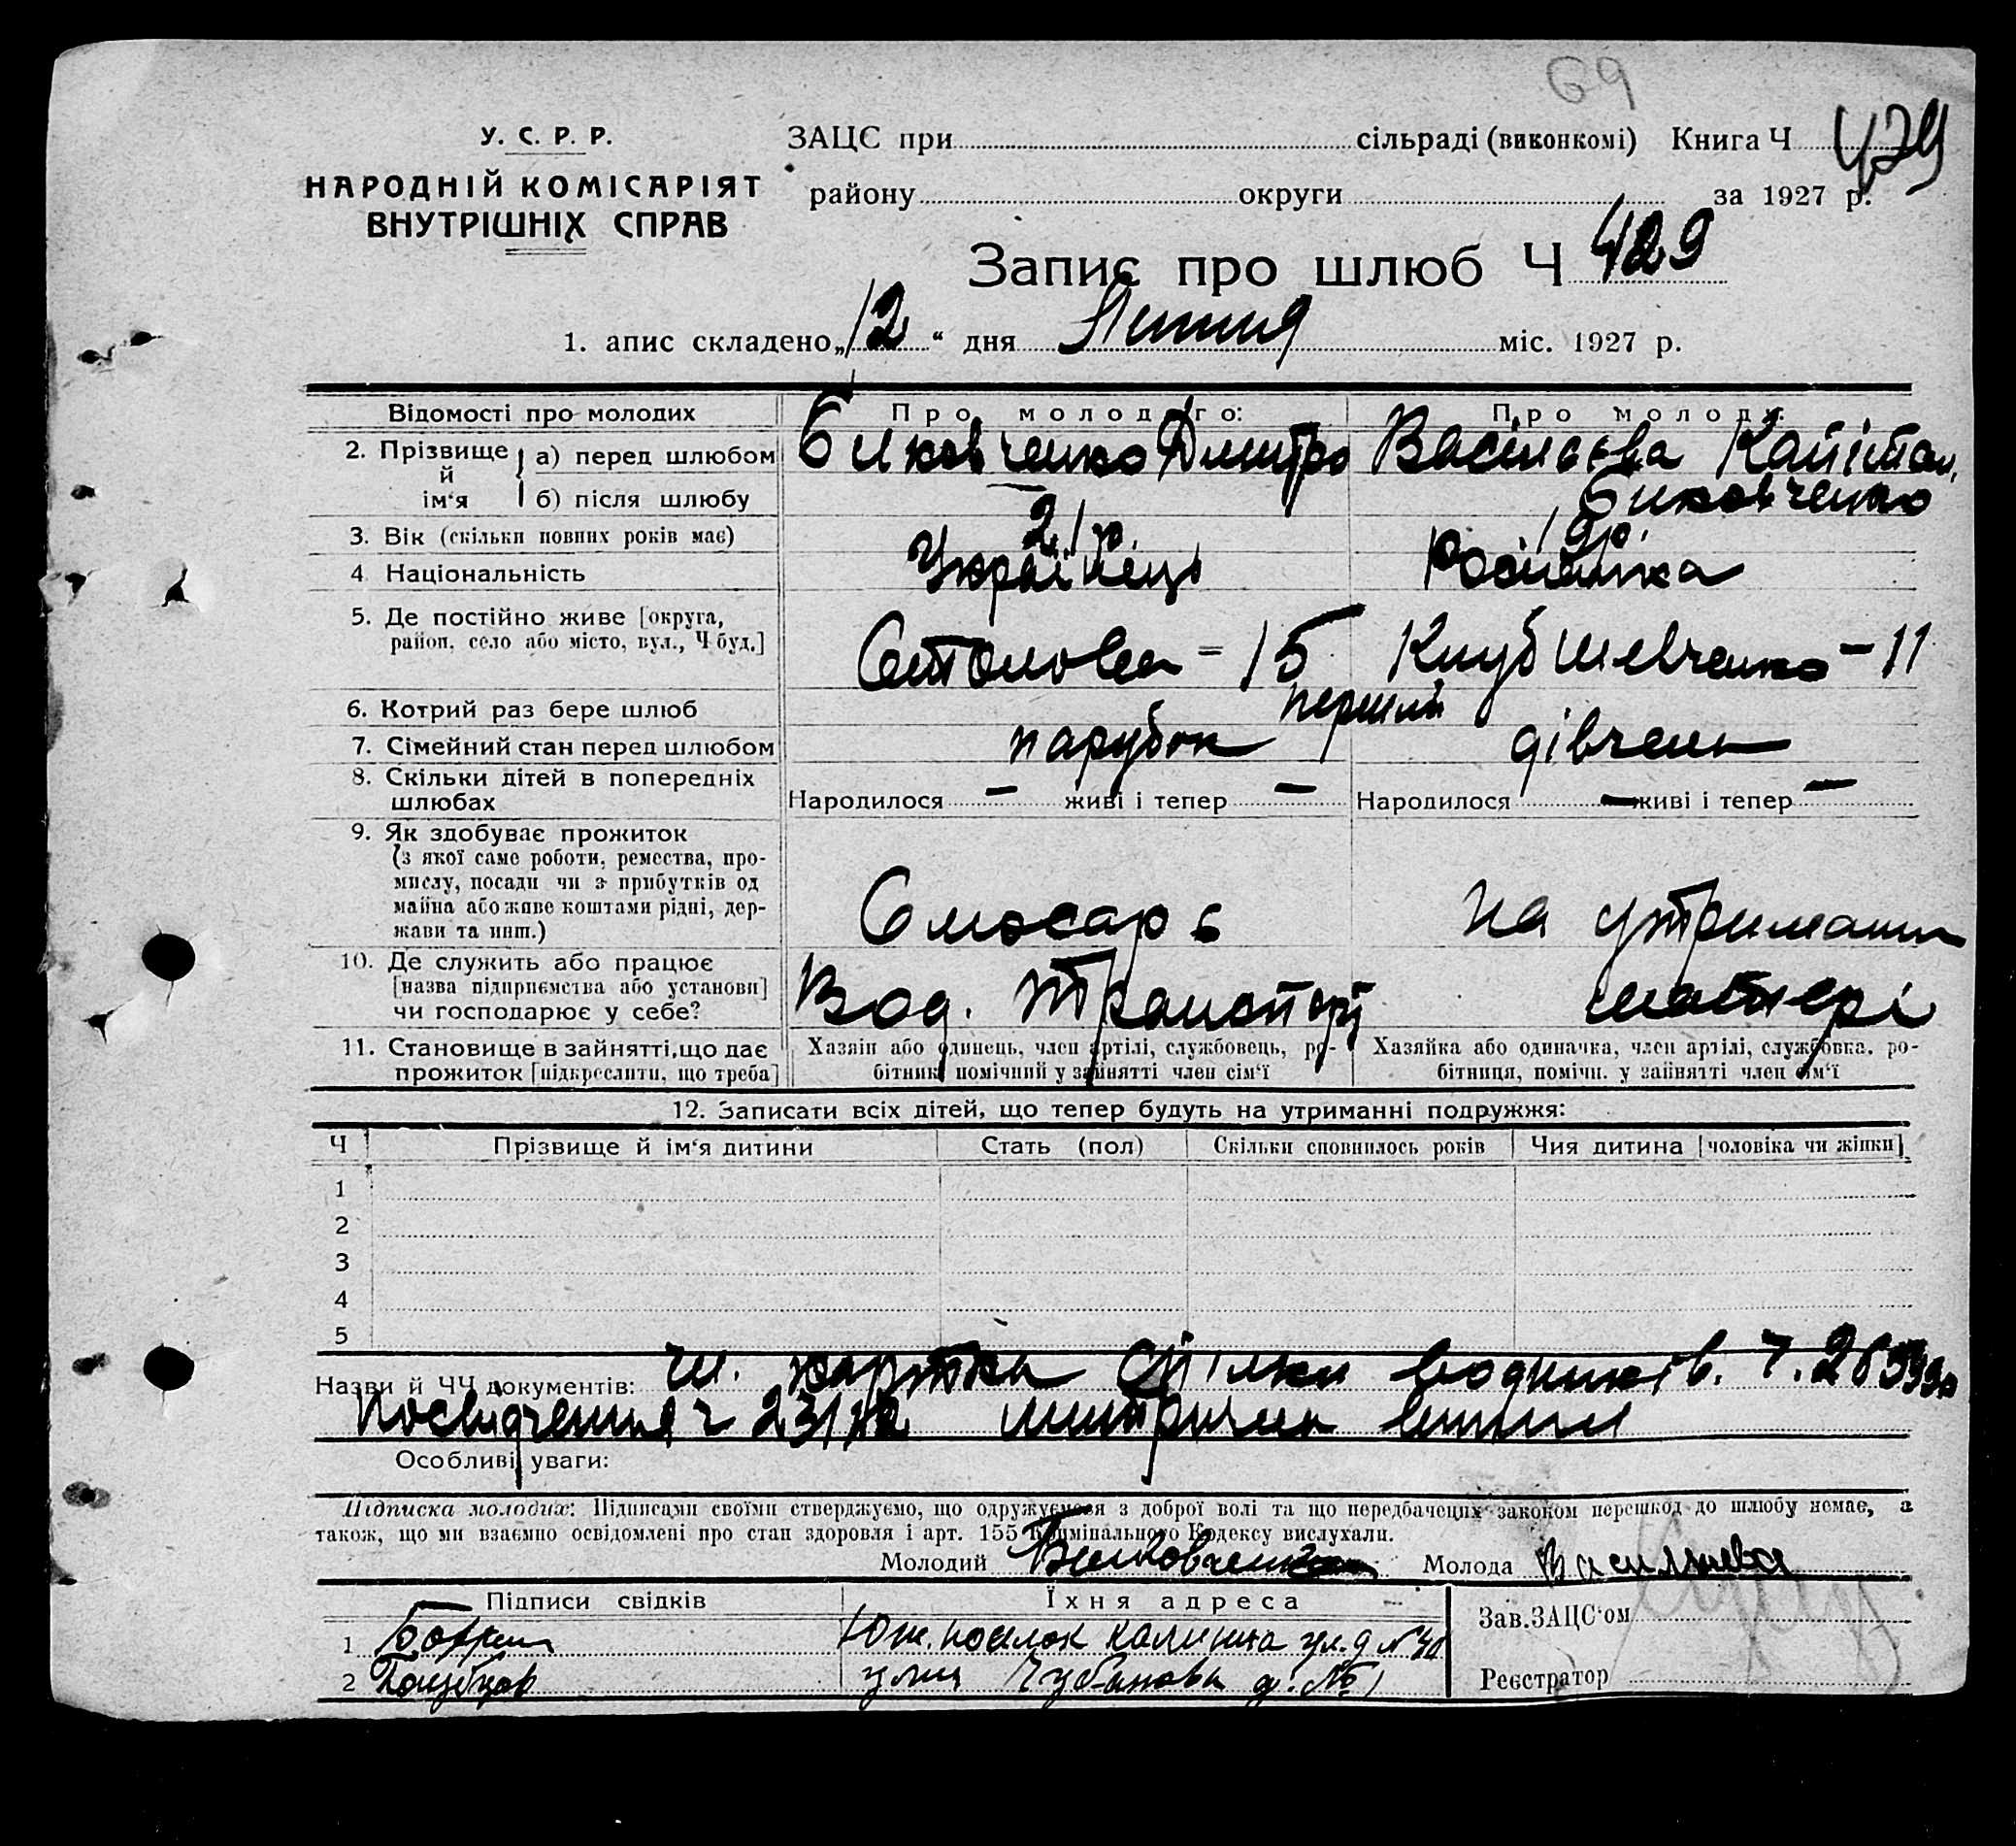 69
У. С. Р. Р.
НАРОДНІЙ КОМІСАРІЯТ
ВНУТРІШНІХ СПРАВ
ЗАЦС при сільраді (виконкомі) Книга Ч 429
району округи за 1927 р.
Запис про шлюб Ч 429
1. апис складено „12“ дня Липня міс. 1927 р.
Відомості про молодих Про молодого: Про молоду:
2. Прізвище й ім‘я а) перед шлюбом Биковченко Дмитро Васільєва Капітал.
б) після шлюбу Биковченко
3. Вік (скільки повних років має) 21 р. 19 р.
4 Національність Українець Росіянка
5. Де постійно живе [округа,
район, село або місто, вул., Ч буд.] Столова - 15 Клуб Шевченко - 11
6. Котрий раз бере шлюб перший
7. Сімейний стан перед шлюбом парубок дівчина
8. Скільки дітей в попередніх
шлюбах Народилося — живі і тепер — Народилося — живі і тепер —
9. Як здобуває прожиток
(з якої саме роботи, ремества, про-
мислу, посади чи з прибутків од
майна або живе коштами рідні, дер-
жави та инш.) Слюсарь на утриманні
10. Де служить або працює
[назва підприємства або установи]
чи господарює у себе? Вод. Транспорт матері
11. Становище в зайнятті, що дає
прожиток [підкреслити, що треба]
Хазяїн або одинець, член артілі, службовець, ро-
бітник, помічний у зайнятті член сім‘ї
Хазяйка або одиначка, член артілі, службовка, ро-
бітниця, помічн. у зайнятті член сім‘ї
12. Записати всіх дітей, що тепер будуть на утриманні подружжя:
Ч Прізвище й ім‘я дитини Стать (пол) Скільки сповнилось років Чия дитина [чоловіка чи жінки]
1
2
3
4
5
Назви й ЧЧ документів: чл. картка спілки водників.
Посвідчення ч метричн витяг
Особливі уваги:
Підписка молодих: Підписами своїми стверджуємо, що одружуємося з доброї волі та що передбачених законом перешкод до шлюбу немає, а
також, що ми взаємно освідомлені про стан здоровля і арт. 155 Кримінального Кодексу вислухали.
Молодий Биковченко Молода Васильева
Підписи свідків Їхня адреса
1 Юж. поселок Калинина ул. д № 40
2 улиц Чубанова д. № 1
Зав. ЗАЦС‘ом
Реєстратор